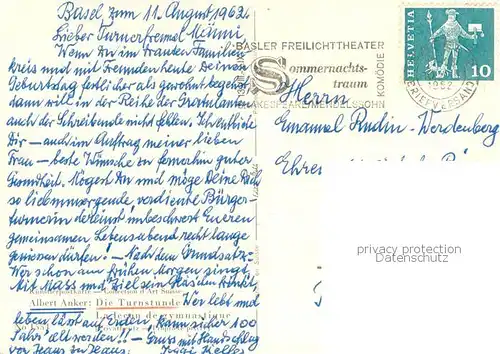 Basel zum 11. August 1962
Lieber Turnerfreund Menni
Wenn Du im trauten Familien-
kreis und mit Freunden heute Deinen
Geburtstag festlicher als gewohnt begehst
dann will in der Reihe der Gratulanten
auch der Schreibende nicht fehlen. Ich entbiete
Dir – auch im Auftrag meiner lieben
Frau – beste Wünsche zu fernerhin guter
Gesundheit. Mögest Du und möge Deine
so liebumsorgende, verdiente Bürger-
turnerin dereinst unbeschwert Eueren
gemeinsamen Lebensabend recht lange
geniessen dürfen! – Nach dem Grundsatz:
Wer schon am frühen Morgen singt,
Mit Mass und Ziel sein Glas Roten trinkt,
Künstlerpostkarte — Collection d'Art Suisse
Albert Anker: Die Turnstunde Wer lebt und
La leçon de gymnastique
leben lässt auf Erden, kann sicher 100
Jahr' alt werden!! – Gruss mit Handschlag
von Haus zu Haus:
BASLER FREILICHTTHEATER
Sommernachts-
traum
KOMÖDIE
SHAKESPEARE/MENDELSSOHN
HELVETIA
10
1962
BRIEFVERSAND
Herrn
Emanuel Rudin-Werdenberg
privacy protection
Datenschutz